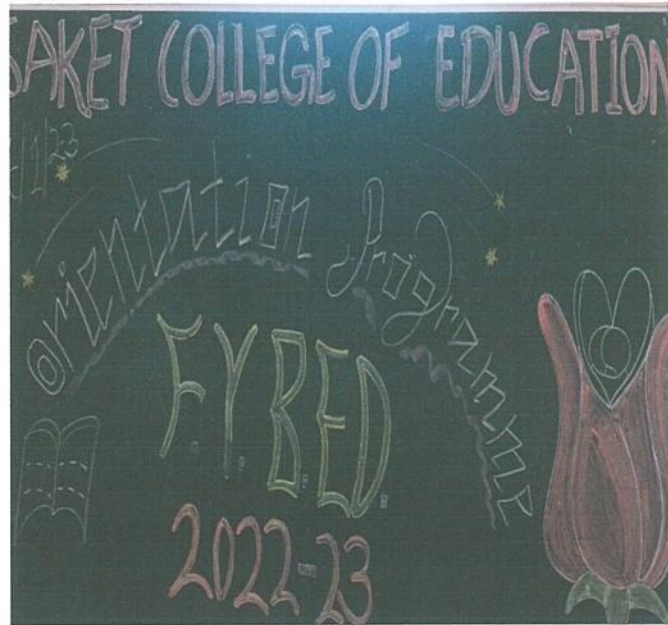 SAKET COLLEGE OF EDUCATION
/1/23
Orientation Programme
F.Y.B.ED
2022-23